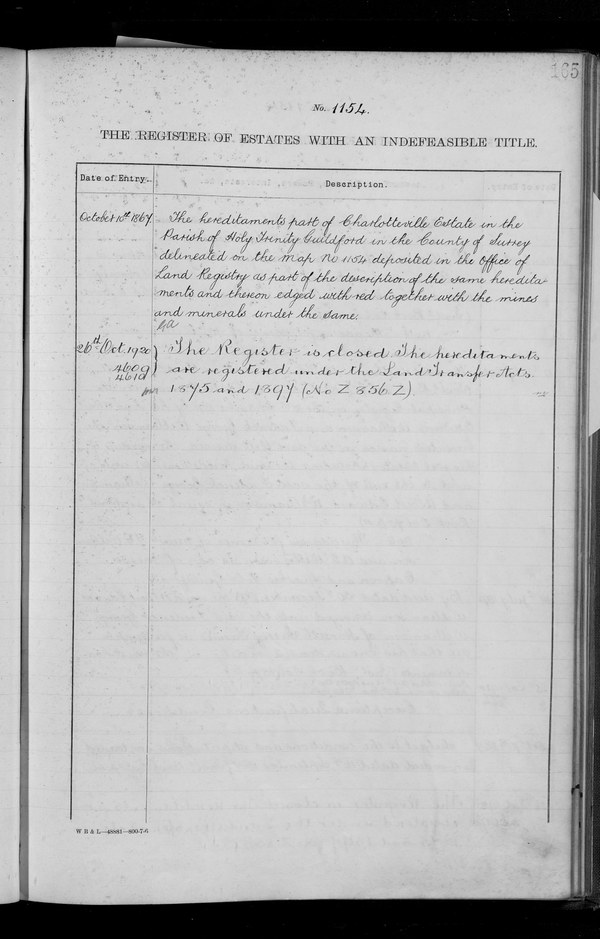 165
No. 1154.
THE REGISTER OF ESTATES WITH AN INDEFEASIBLE TITLE.
Date of Entry.
Description.
October 10th 1867
The hereditaments part of Charlotteville Estate in the
Parish of Holy Trinity Guildford in the County of Surrey
delineated on the Map No 1154 deposited in the Office of
Land Registry as part of the description of the same heredita
ments and thereon edged with red together with the mines
and minerals under the same.
26th Oct. 1920
4609
4610
The Register is closed The hereditaments
are registered under the Land Transfer Acts
1875 and 1897 (No Z 856 Z).
W B & L—48881—800-7-6